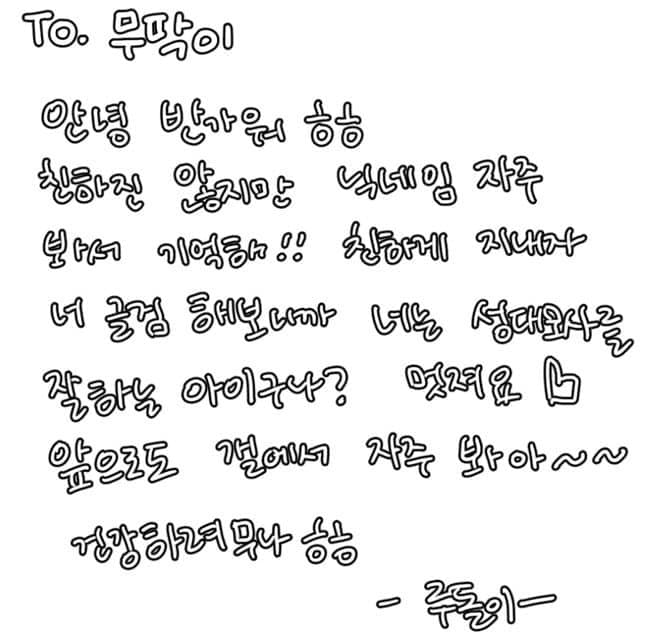 To. 무딱이
안녕 반가워 ㅎㅎ
친하진 않지만 닉네임 자주
봐서 기억해!! 친하게 지내자
너 글검 해보니까 너는 성대묘사를
잘하는 아이구나? 멋져요
앞으로도 갤에서 자주 봐아~~
건강하려무나 ㅎㅎ
- 주돌이 -